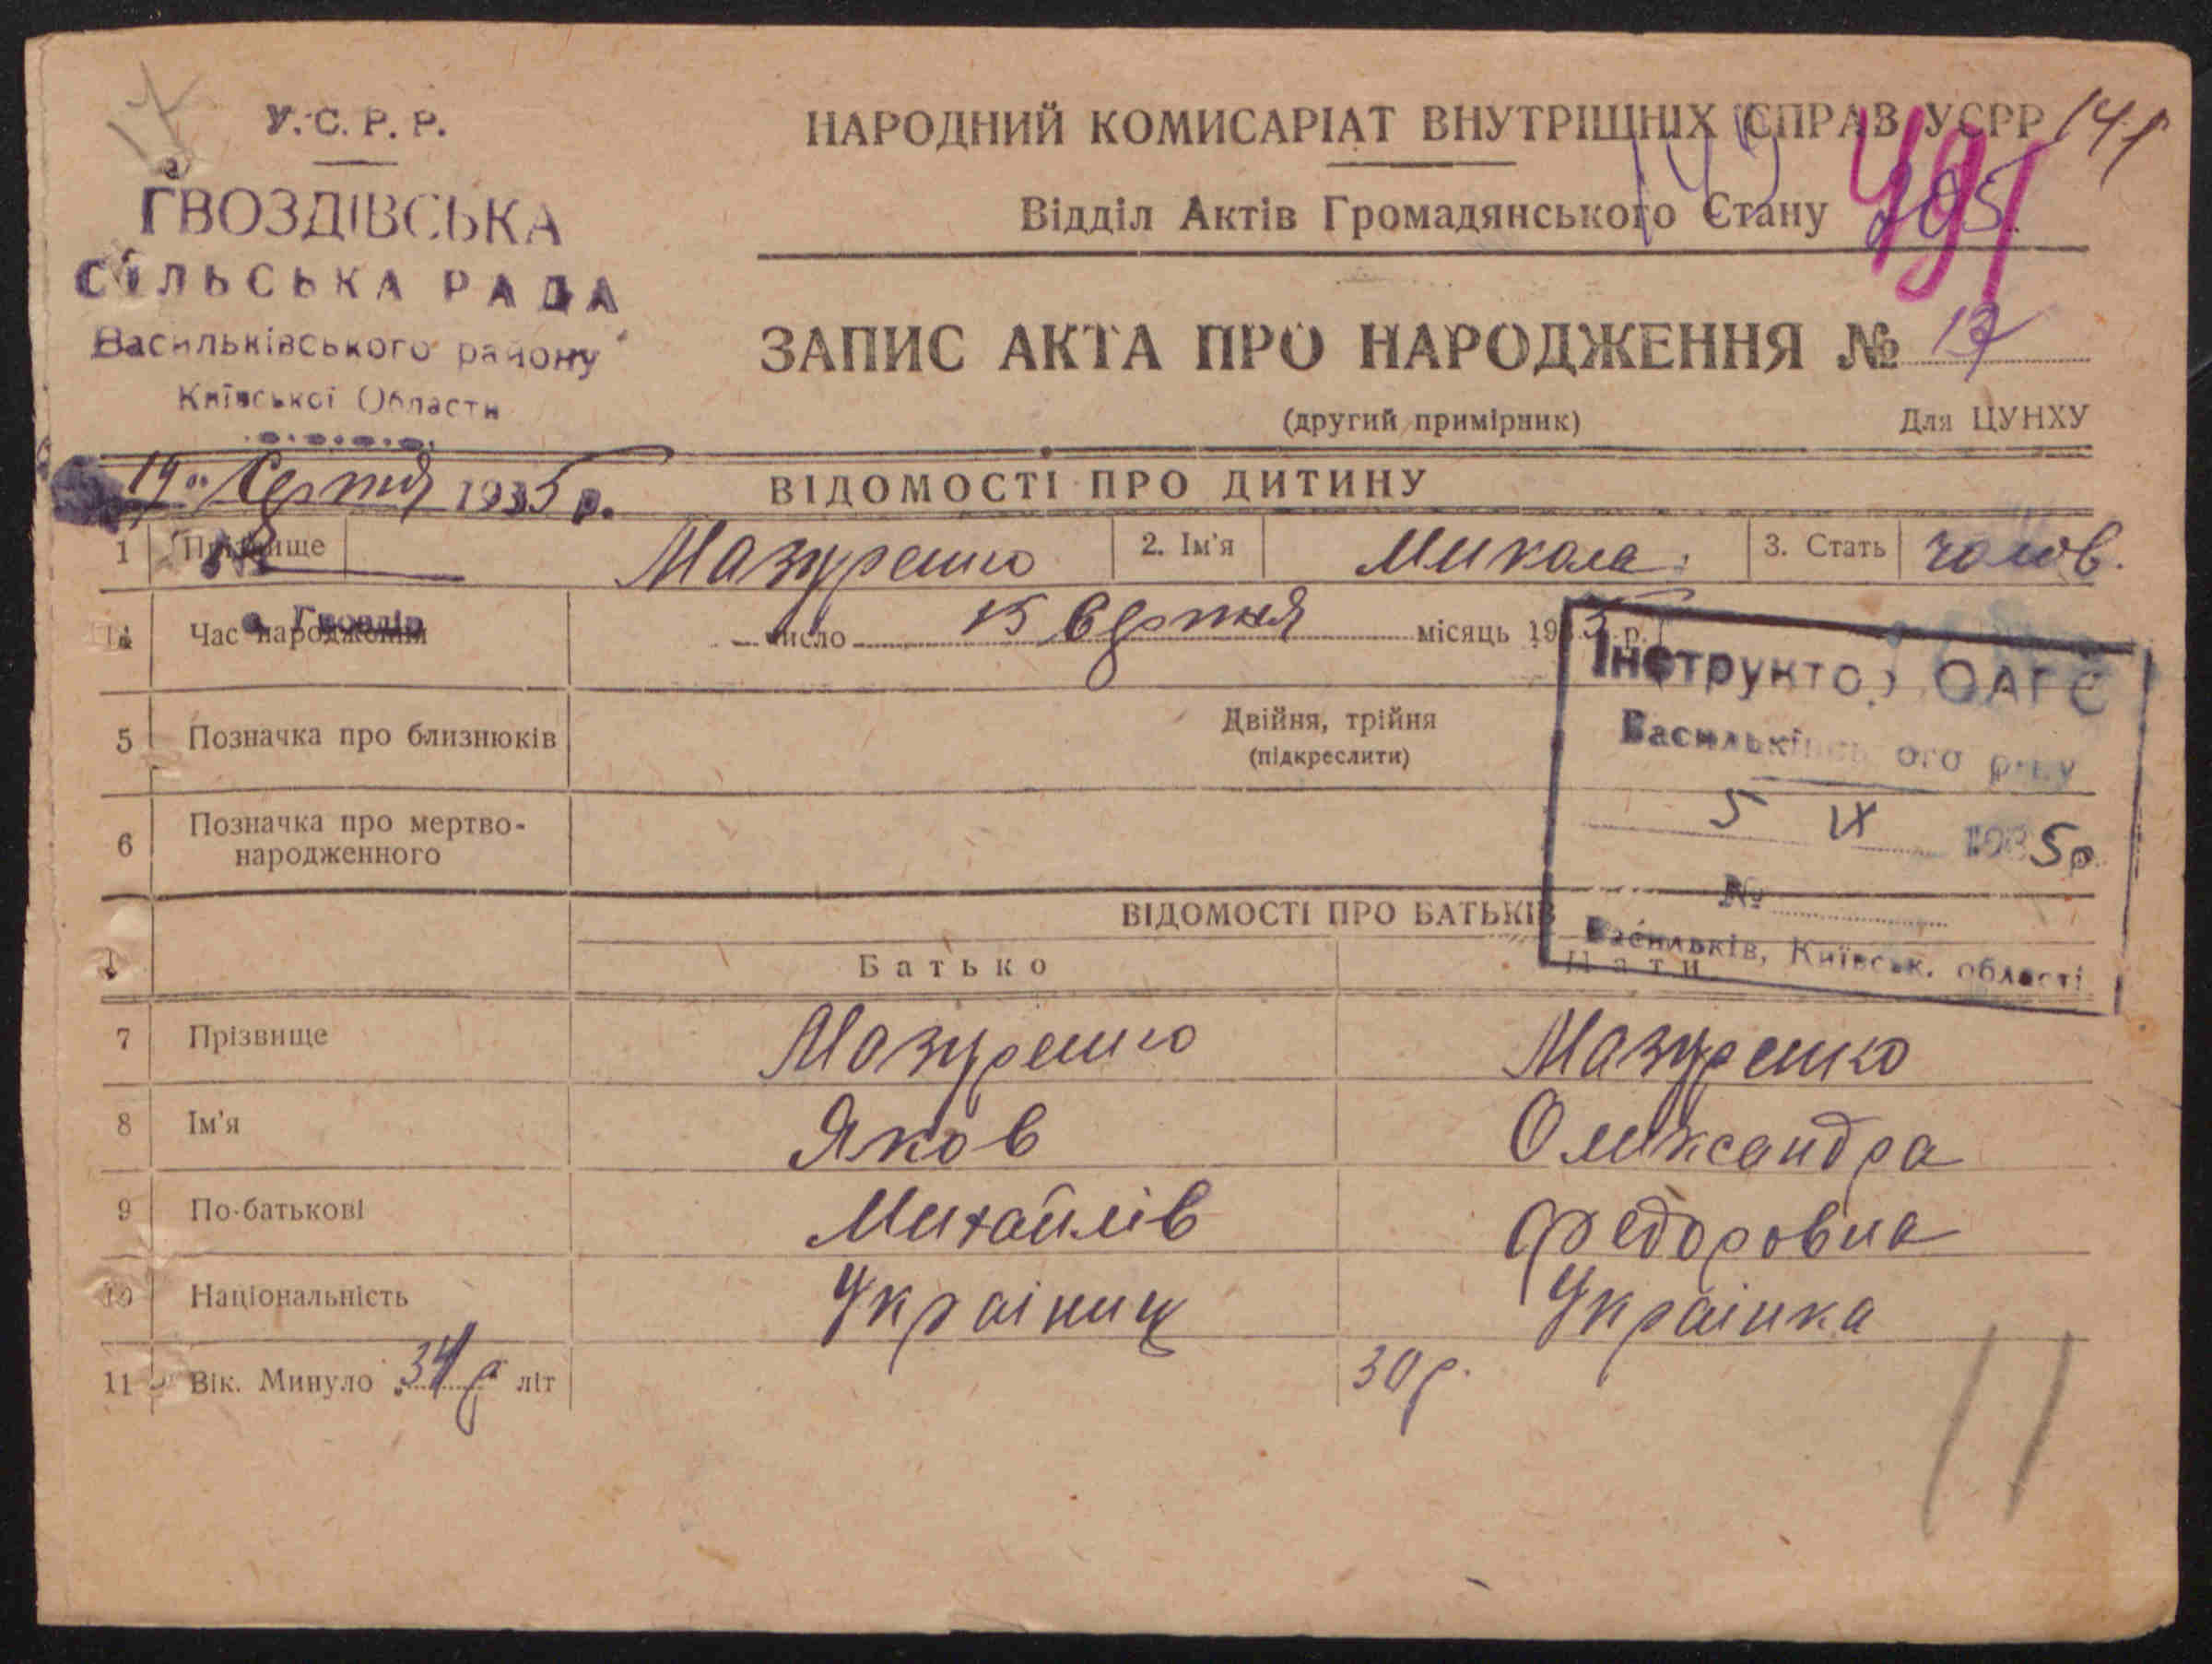 У.С.Р.Р.
ГВОЗДІВСЬКА
СІЛЬСЬКА РАДА
Васильківського району
Київської Області
19 Серпня 1935 р.
№
с. Гвоздів
НАРОДНИЙ КОМИСАРІАТ ВНУТРІШНІХ СПРАВ УСРР
Відділ Актів Громадянського Стану
ЗАПИС АКТА ПРО НАРОДЖЕННЯ № 17
(другий примірник) Для ЦУНХУ
ВІДОМОСТІ ПРО ДИТИНУ
1 Прізвище Мазуренко 2. Ім'я Микола 3. Стать чолов.
4 Час народження число 15 Серпня місяць 1935 р.
5 Позначка про близнюків Двійня, трійня
(підкреслити)
6 Позначка про мертво-
народженного
Інструктор ОАГС
Васильківського р-ну
5 IX 1935 р.
№
Васильків, Київськ. області
ВІДОМОСТІ ПРО БАТЬКІВ
Батько Мати
7 Прізвище Мазуренко Мазуренко
8 Ім'я Яков Олександра
9 По-батькові Михайлів Федоровна
10 Національність Українец Українка
11 Вік. Минуло 34 р літ 30 р.